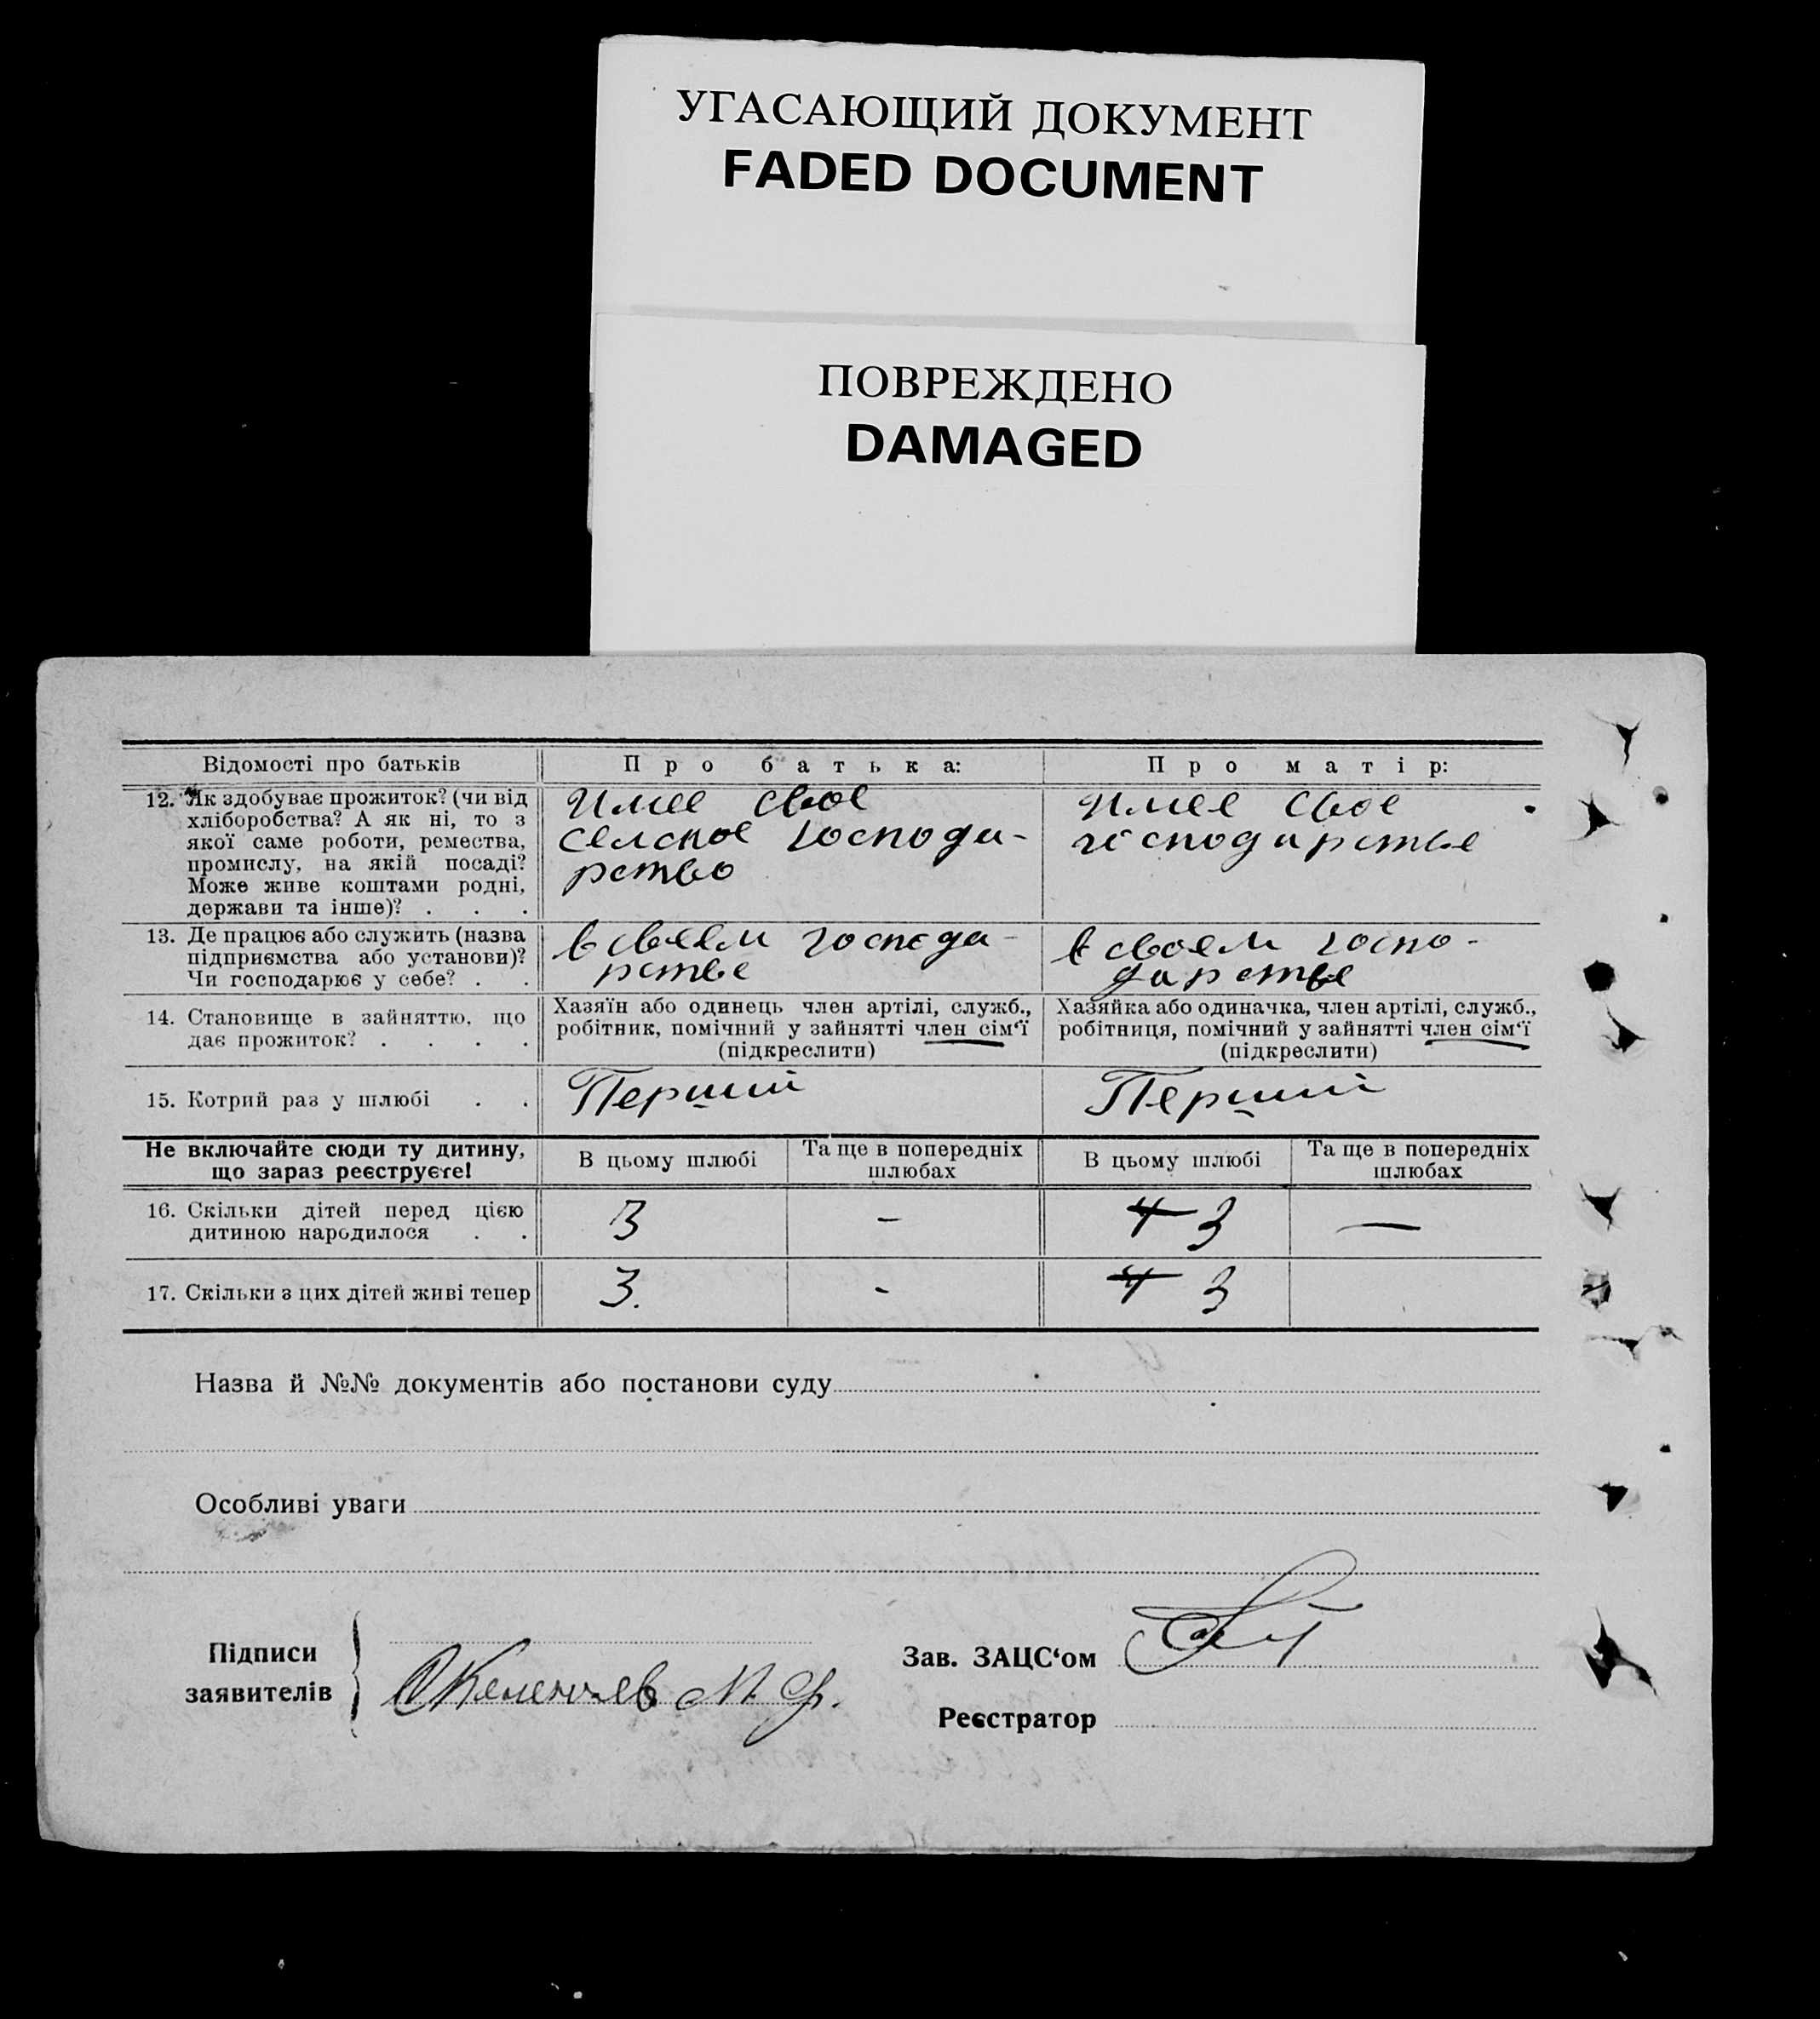 УГАСАЮЩИЙ ДОКУМЕНТ
FADED DOCUMENT
ПОВРЕЖДЕНО
DAMAGED
Відомості про батьків
Про батька:
Про матір:
12. Як здобуває прожиток? (чи від
хліборобства? А як ні, то з
якої саме роботи, ремества,
промислу, на якій посаді?
Може живе коштами родні,
держави та інше)? . . .
Имее свое
селское господа-
рство
Имее свое
господарстве
13. Де працює або служить (назва
підприємства або установи)?
Чи господарює у себе? . .
в своем господа-
рстве
в своем госпо-
дарстве
14. Становище в зайняттю, що
дає прожиток? . . . .
Хазяїн або одинець член артілі, служб.,
робітник, помічний у зайнятті член сім‘ї
(підкреслити)
Хазяйка або одиначка, член артілі, служб.,
робітниця, помічний у зайнятті член сім‘ї
(підкреслити)
15. Котрий раз у шлюбі . .
Перший
Перший
Не включайте сюди ту дитину,
що зараз реєструєте!
В цьому шлюбі
Та ще в попередніх
шлюбах
В цьому шлюбі
Та ще в попередніх
шлюбах
16. Скільки дітей перед цією
дитиною народилося . .
3
-
4 3
—
17. Скільки з цих дітей живі тепер
3.
-
4 3
Назва й №№ документів або постанови суду
Особливі уваги
Підписи
заявителів
М. Ф.
Зав. ЗАЦС‘ом
Реєстратор